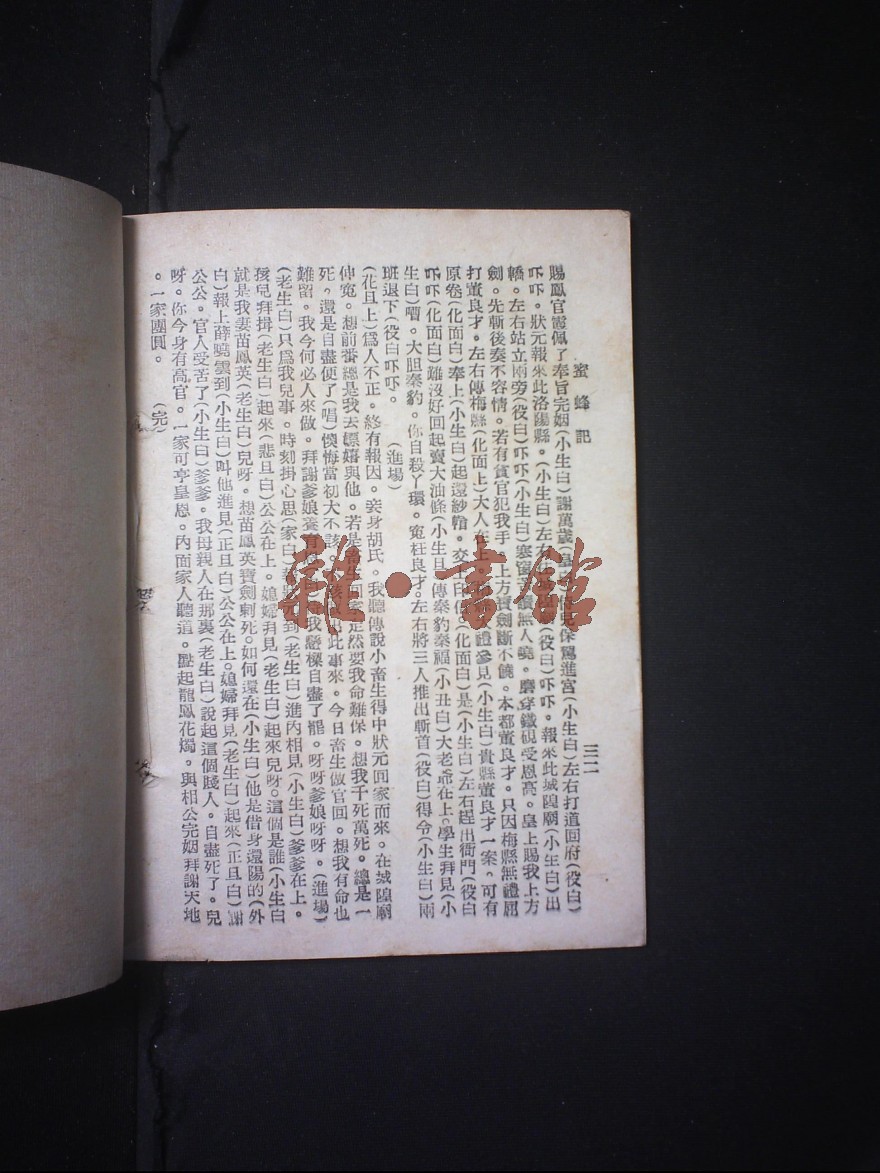 蜜蜂記
三二
賜鳳官霞佩了奉旨完姻(小生白)謝萬歲(皇 保駕進宮(小生白)左右打道回府(役白)
吓吓。狀元報來此洛陽縣。(小生白)左右 (役白)吓吓。報來此城隍廟(小生白)出
轎。左右站立兩旁(役白)吓吓(小生白)寒窗 無人曉。磨穿鐵硯受恩高。皇上賜我上方
劍。先斬後奏不容情。若有貪官犯我手。上方寶劍斷不饒。本都董良才。只因梅縣無禮屈
打董良才。左右傳梅縣(化面上)大人在上。 禮參見(小生白)貴縣董良才一案。可有
原卷(化面白)奉上(小生白)起還紗帽。交上 (化面白)是(小生白)左右趕出衙門(役白
吓吓(化面白)雖沒好回起賣大油條(小生旦)傳秦豹秦福(小丑白)大老爺在上。學生拜見(小
生白)嘈。大胆秦豹。你自殺丫環。冤枉良才。左右將三人推出斬首(役白)得令(小生白)兩
班退下(役白)吓吓。 (進場)
(花旦上)爲人不正。終有報因。妾身胡氏。我聽傳說小畜生得中狀元回家而來。在城隍廟
伸冤。想前番總是我去嫖嬉與他。若是畜生回家定然要我命難保。想我千死萬死。總是一
死。還是自盡便了(唱)懊悔當初大不該。 出此事來。今日畜生做官回。想我有命也
難留。我今何必人來做。拜謝爹娘養育 我懸樑自盡了罷。呀呀爹娘呀呀。(進場)
(老生白)只爲我兒事。時刻掛心思(家白)報狀元到(老生白)進內相見(小生白)爹爹在上。
孩兒拜揖(老生白)起來(悲旦白)公公在上。媳婦拜見(老生白)起來兒呀。這個是誰(小生白
就是我妻苗鳳英(老生白)兒呀。想苗鳳英寶劍刺死。如何還在(小生白)他是借身還陽的(外
白)報上薛曉雲到(小生白)叫他進見(正旦白)公公在上。媳婦拜見(老生白)起來(正旦白)謝
公公。官人受苦了(小生白)爹爹。我母親人在那裏(老生白)說起這個賤人。自盡死了。兒
呀。你今身有高官。一家可亨皇恩。內面家人聽道。點起龍鳳花燭。與相公完姻拜謝天地
。一家團圓。 (完)
雜·書館